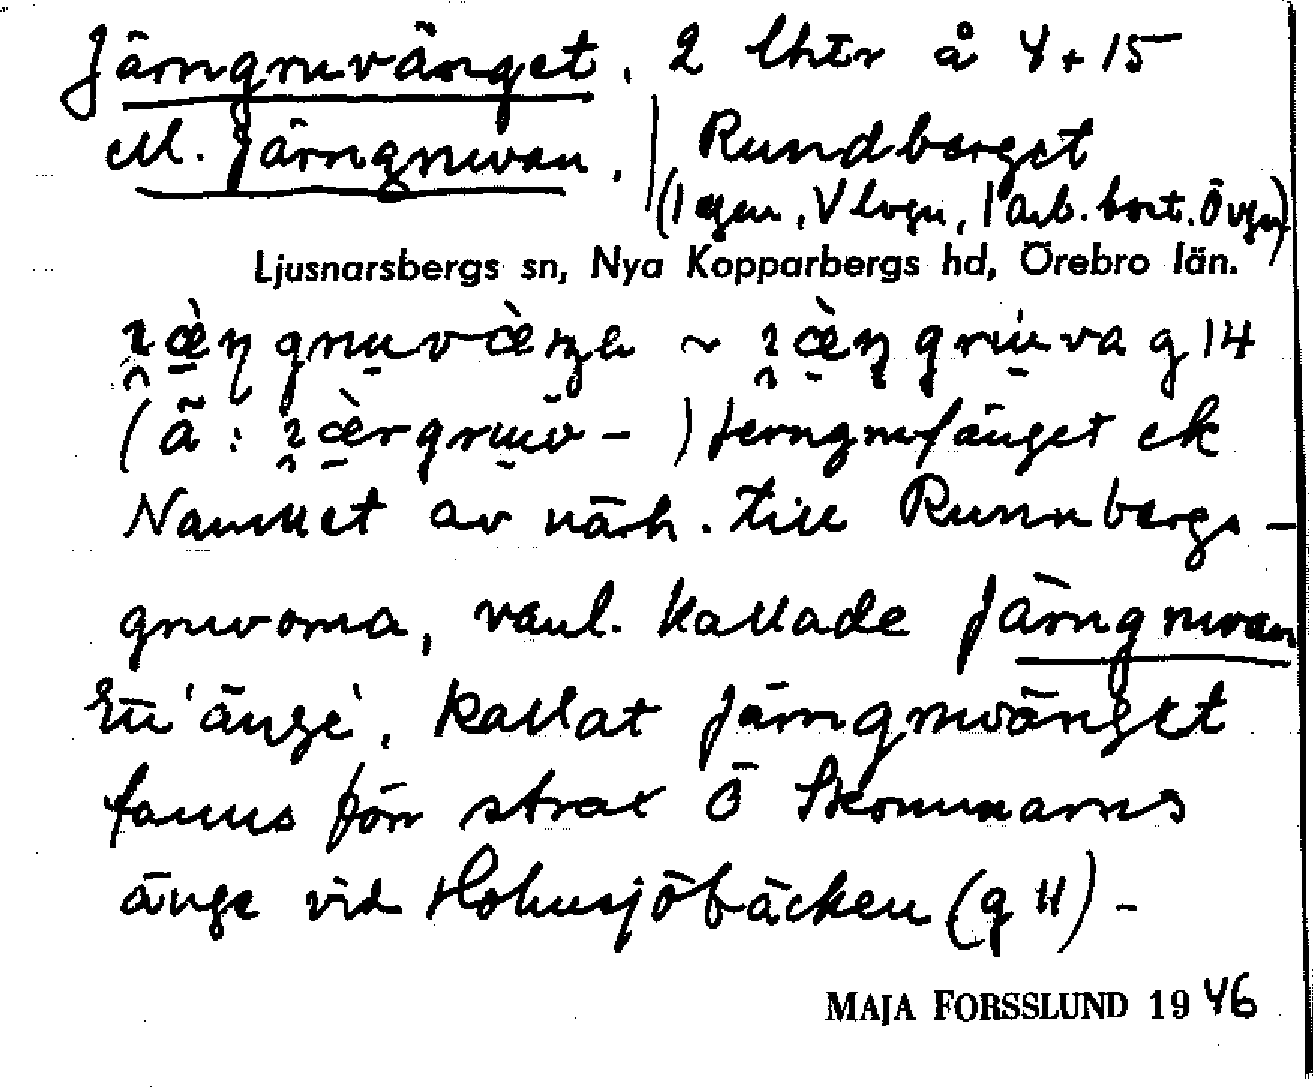 Järngruvänget. 2 lhtr å 4+15
ell. Järngruvan. | Rundberget
(1 egen, V lvgn, 1 arb. bost. Övgn)
Ljusnarsbergs sn, Nya Kopparbergs hd, Örebro län.
g 14
(ä: ) Jerngrufänget ek
Namnet av närh. till Runnbergs-
gruvorna, vanl. kallade Järngruvan
Ett 'änge', kallat Järngruvänget
fanns förr strax Ö Skommarns
änge vid Hohusjöbäcken (g 11) -
MAJA FORSSLUND 1946